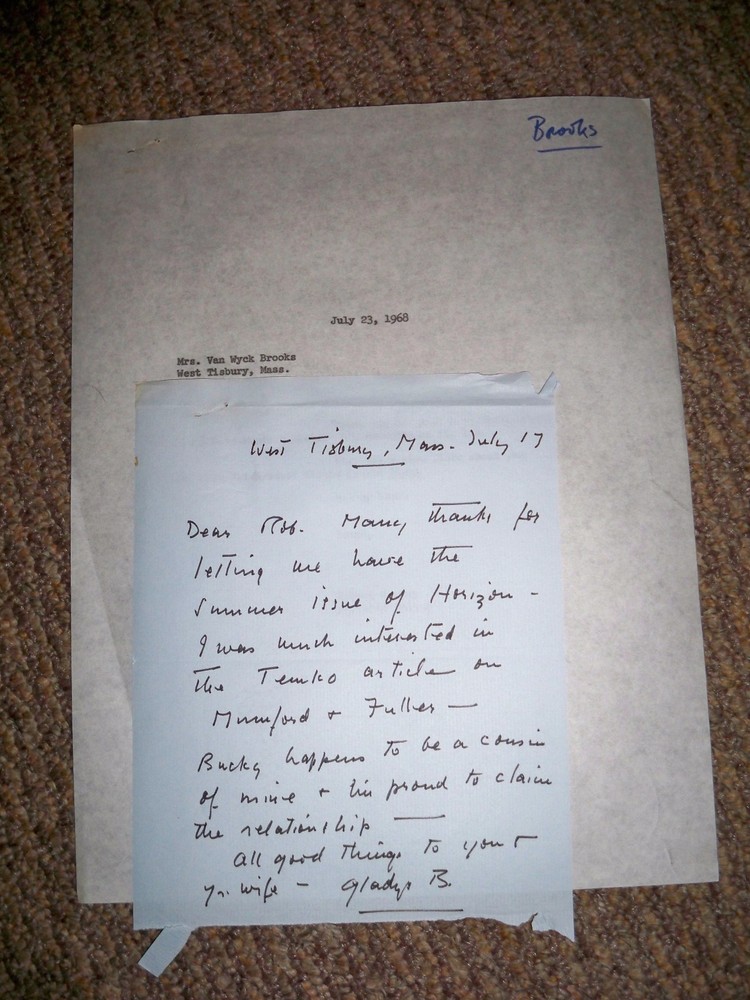 Brooks
July 23, 1968
Mrs. Van Wyck Brooks
West Tisbury, Mass.
West Tisbury, Mass. July 17
Dear Rob. Many thanks for
letting me have the
summer issue of Horizon -
I was much interested in
the Temko article on
Mumford + Fuller —
Bucky happens to be a cousin
of mine + I'm proud to claim
the relationship —
All good things to you +
yr. wife - Gladys B.